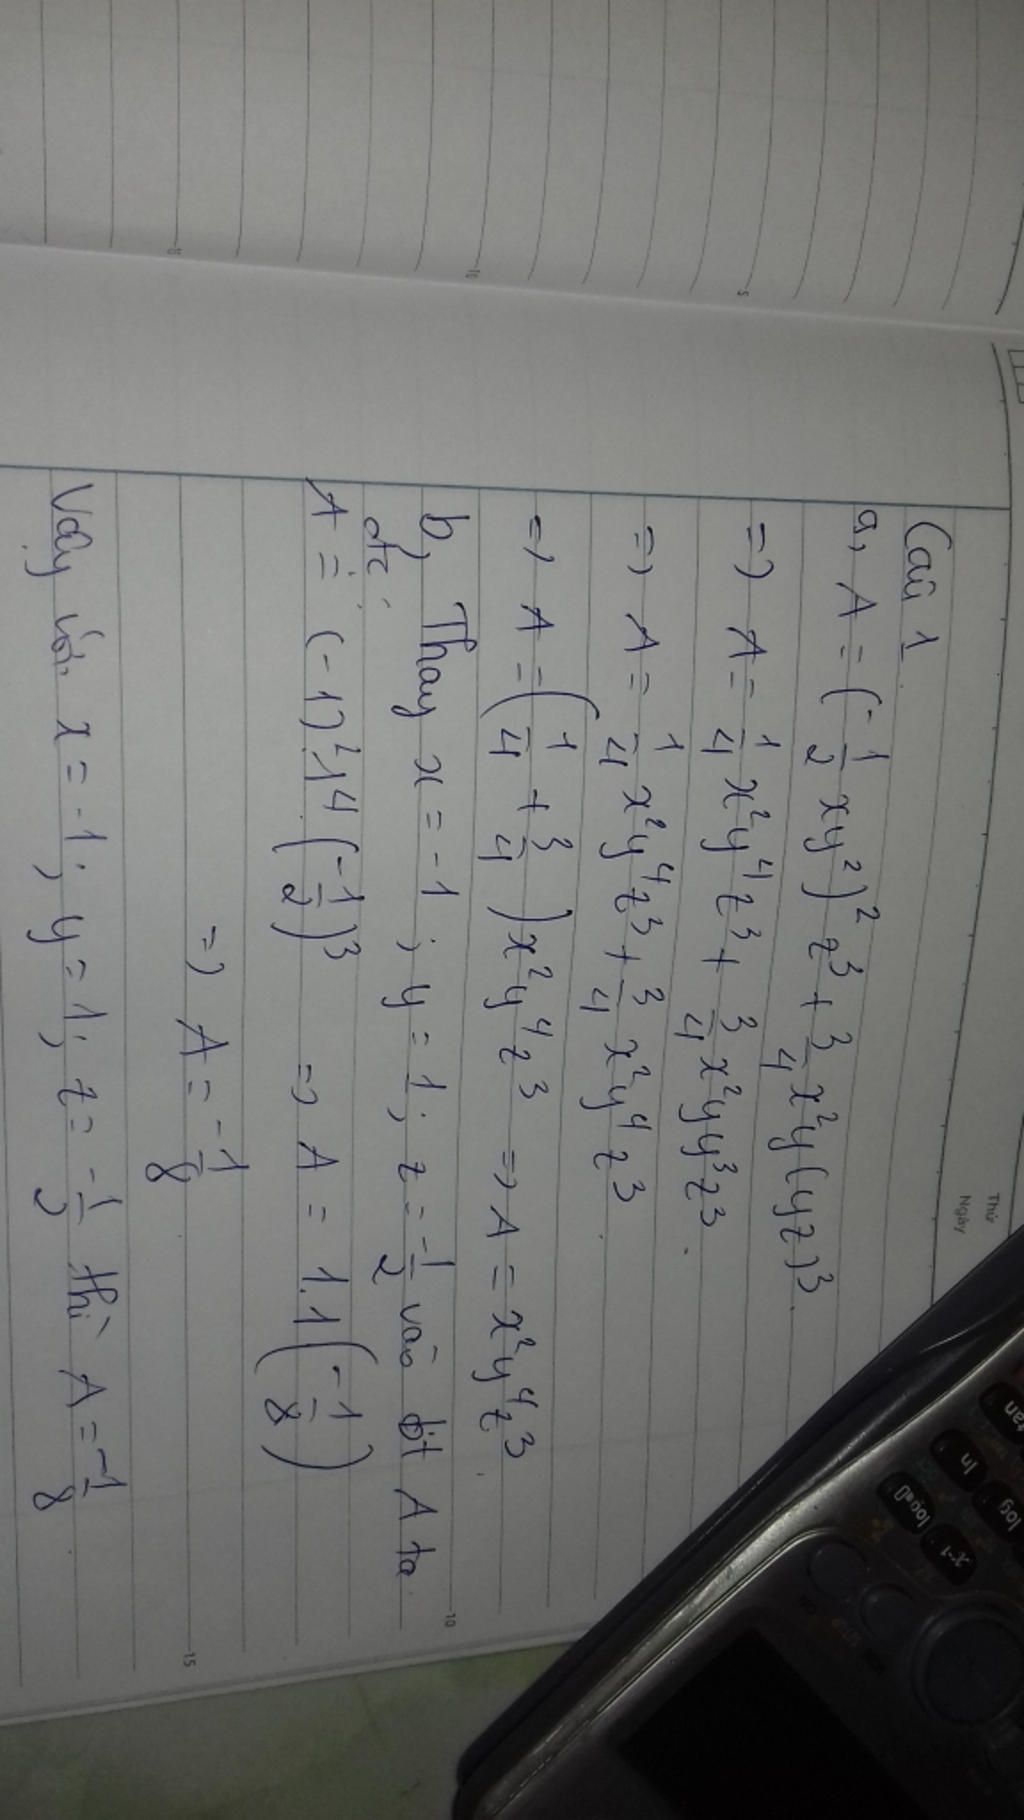 Thứ
Ngày
Câu 1
a, A = (-1/2 xy²)² z³ + 3/4 x²y(yz)³.
=) A = 1/4 x²y⁴z³ + 3/4 x²yy³z³.
=) A = 1/4 x²y⁴z³ + 3/4 x²y⁴z³
=) A = (1/4 + 3/4) x²y⁴z³ =) A = x²y⁴z³.
b, Thay x = -1 ; y = 1 ; z = -1/2 vào đt A ta
đc:
A = (-1)².1⁴(-1/2)³ =) A = 1.1(-1/8)
=) A = -1/8
Vậy với x = -1; y = 1; z = -1/2 thì A = -1/8
5
10
10
15
tan
ln
log
log₂□
x⁻¹
ON